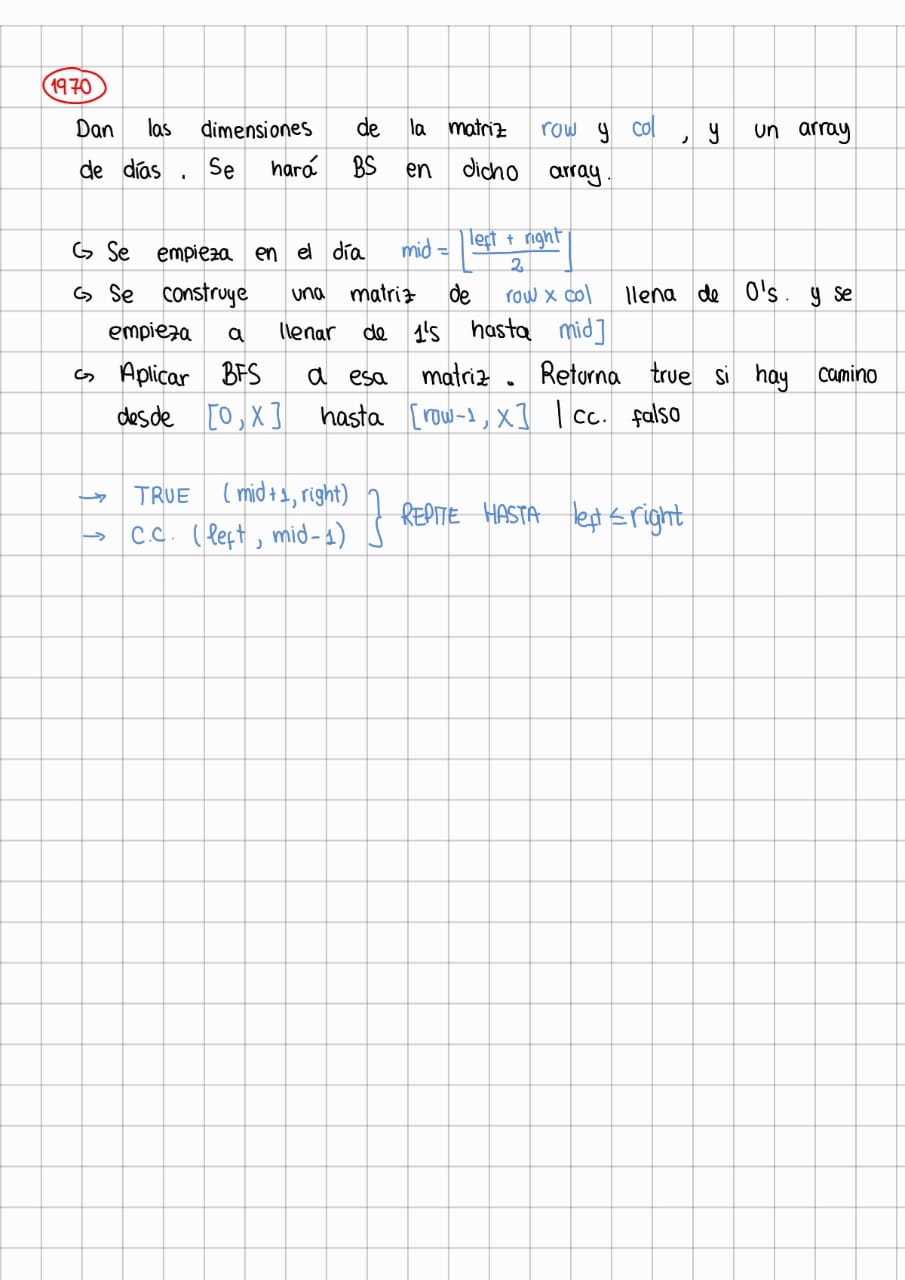 1970
Dan las dimensiones de la matriz row y col , y un array
de días . Se hará BS en dicho array.
↪ Se empieza en el día mid = ⌊(left + right)/2⌋
↪ Se construye una matriz de row x col llena de 0's. y se
empieza a llenar de 1's hasta mid]
↪ Aplicar BFS a esa matriz . Retorna true si hay camino
desde [0, X] hasta [row-1, X] | cc. falso
→ TRUE (mid+1, right) } REPITE HASTA left ≤ right
→ C.C. (left, mid-1)